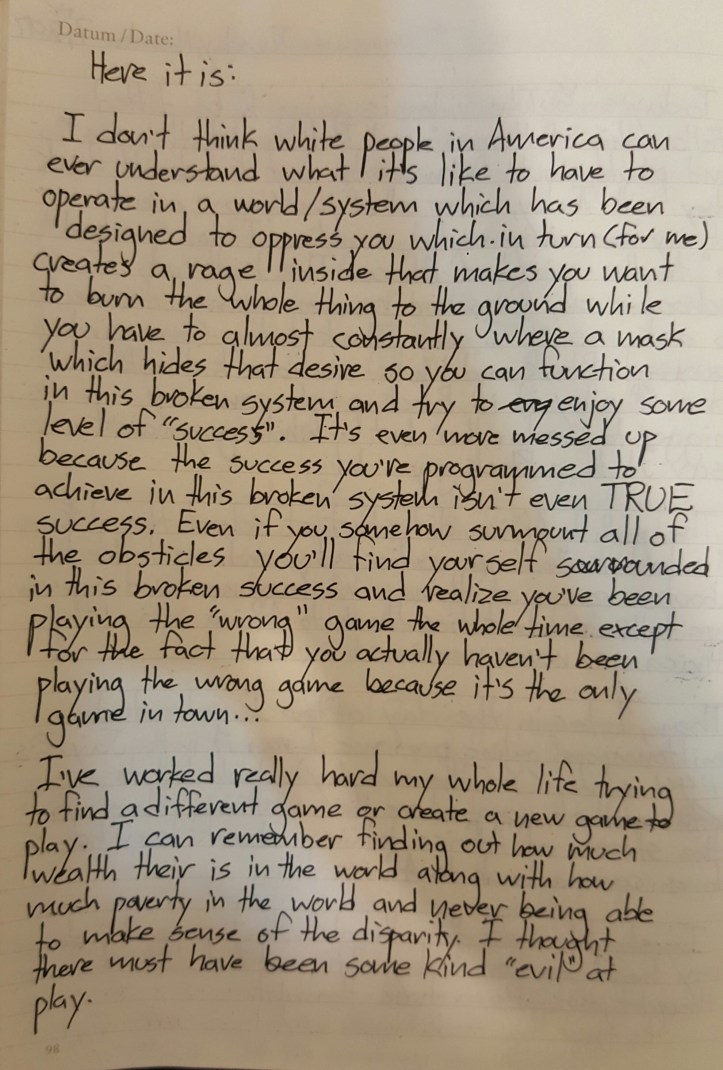 Datum/Date:
Here it is:
I don't think white people in America can
ever understand what it's like to have to
operate in a world/system which has been
designed to oppress you which in turn (for me)
creates a rage inside that makes you want
to burn the whole thing to the ground while
you have to almost constantly where a mask
which hides that desire so you can function
in this broken system and try to enjoy some
level of "success". It's even more messed up
because the success you're programmed to
achieve in this broken system isn't even TRUE
success. Even if you somehow surmount all of
the obsticles you'll find yourself sourounded
in this broken success and realize you've been
playing the "wrong" game the whole time except
for the fact that you actually haven't been
playing the wrong game because it's the only
game in town...
I've worked really hard my whole life trying
to find a different game or create a new game to
play. I can remember finding out how much
wealth their is in the world along with how
much poverty in the world and never being able
to make sense of the disparity. I thought
there must have been some kind "evil" at
play.
98